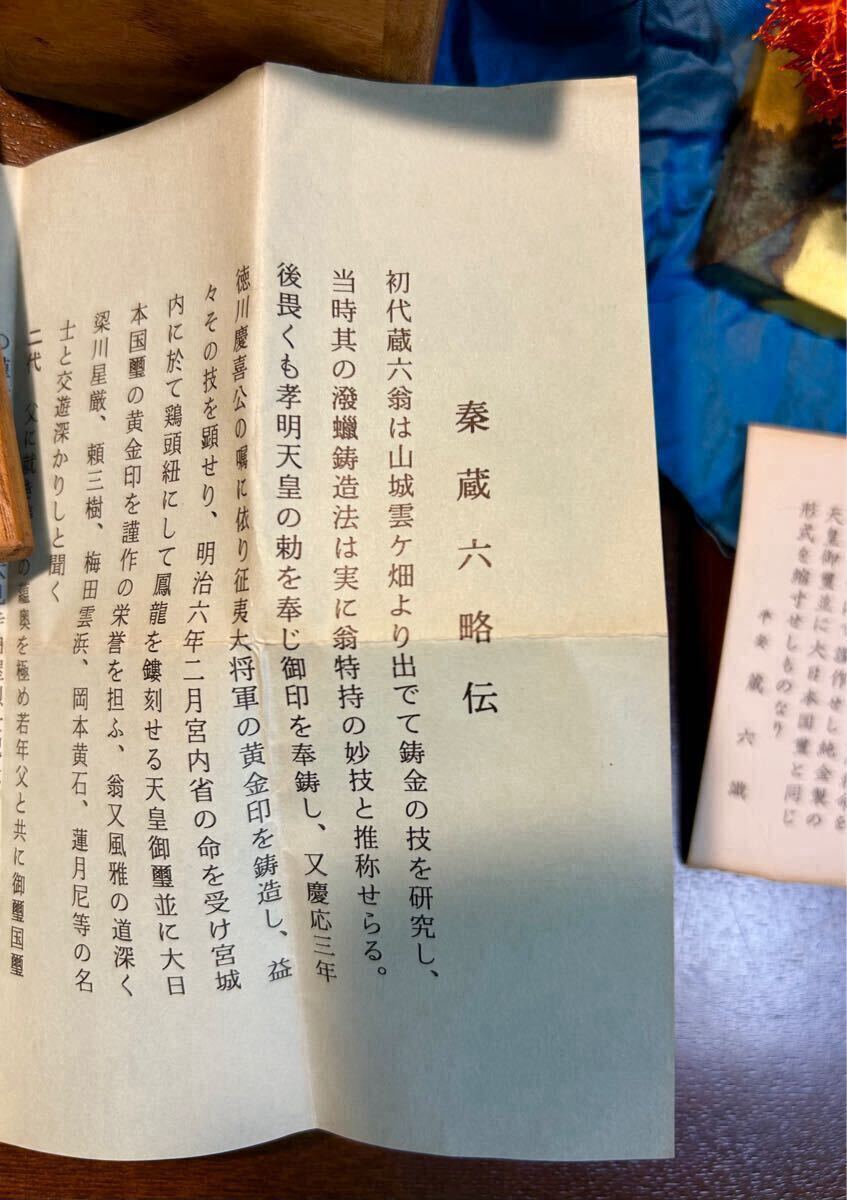 秦蔵六略伝
初代蔵六翁は山城雲ケ畑より出でて鋳金の技を研究し、
当時其の潑蠟鋳造法は実に翁特持の妙技と推称せらる。
後畏くも孝明天皇の勅を奉じ御印を奉鋳し、又慶応三年
徳川慶喜公の嘱に依り征夷大将軍の黄金印を鋳造し、益
々その技を顕せり、明治六年二月宮内省の命を受け宮城
内に於て鶏頭紐にして鳳龍を鏤刻せる天皇御璽並に大日
本国璽の黄金印を謹作の栄誉を担ふ、翁又風雅の道深く
梁川星厳、頼三樹、梅田雲浜、岡本黄石、蓮月尼等の名
士と交遊深かりしと聞く
二代 父に の蘊奥を極め若年父と共に御璽国璽
謹作せし純金製の
天皇御璽並に大日本国璽と同じ
形式を縮寸せしものなり
平安 蔵六 識